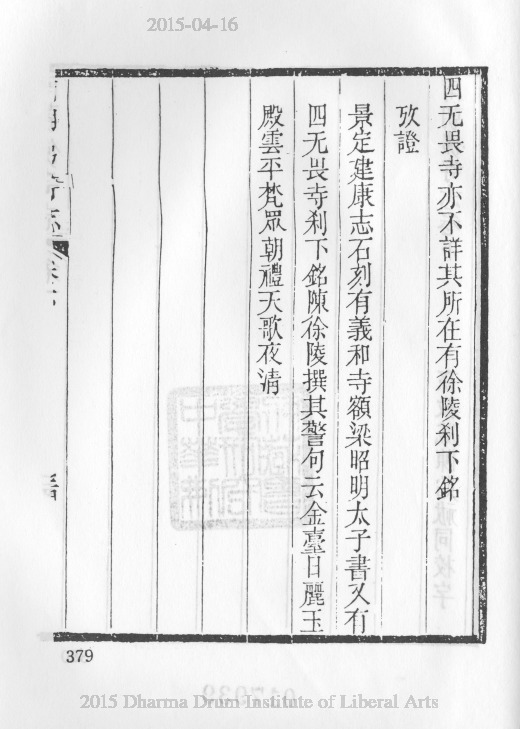 2015-04-16
四无畏寺亦不詳其所在有徐陵刹下銘
攷證
景定建康志石刻有義和寺額梁昭明太子書又有
四无畏寺刹下銘陳徐陵撰其警句云金臺日麗玉
殿雲平梵眾朝禮天歌夜清
379
2015 Dharma Drum Institute of Liberal Arts